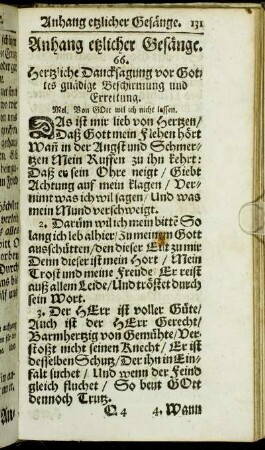 Anhang etzlicher Gesänge. 131
Anhang etzlicher Gesänge.
66.
Hertzliche Dancksagung vor Got-
tes gnädige Beschirmung und
Erreitung.
Mel. Von GOtt wil ich nicht lassen.
DAs ist mir lieb von Hertzen/
Daß Gott mein Flehen hört
Wañ in der Angst und Schmer-
tzen Mein Ruffen zu ihn kehrt:
Daß er sein Ohre neigt/ Giebt
Achtung auf mein klagen/ Ver-
nimt was ich wil sagen/ Und was
mein Mund verschweigt.
2. Darüm wil ich mein bitte So
lang ich leb alhier/ Zu meinem Gott
ausschütten/ den dieser Eilt zu mir
Denn dieser ist mein Hort/ Mein
Trost und meine Freude Er reist
auß allem Leide/ Und tröstet durch
sein Wort.
3. Der HErr ist voller Güte/
Auch ist der HErr Gerecht/
Barmhertzig von Gemühte/ Ver-
stoßt nicht seinen Knecht/ Er ist
desselben Schutz/ Der ihn in Ein-
falt suchet/ Und wenn der Feind
gleich fluchet/ So beut GOtt
dennoch Trutz.
Q 4 4. Wann